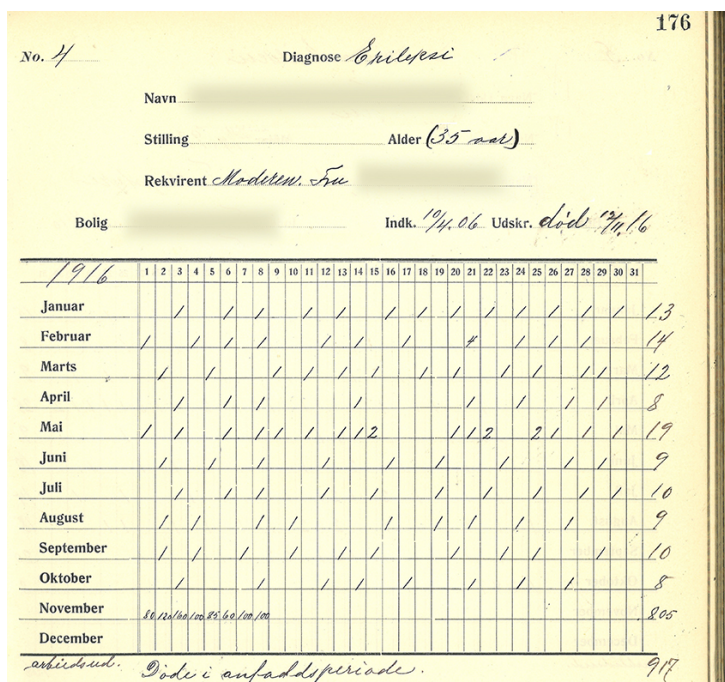 176
No. 4 Diagnose Epilepsi
Navn
Stilling Alder (35 aar)
Rekvirent Moderen. Fru
Bolig Indk. 10/4. 06 Udskr. død 12/11. 16
1916 1 2 3 4 5 6 7 8 9 10 11 12 13 14 15 16 17 18 19 20 21 22 23 24 25 26 27 28 29 30 31
Januar / / / / / / / / / / / / / 13
Februar / / / / / / / 4 / / / 14
Marts / / / / / / / / / / / / 12
April / / / / / / / / 8
Mai / / / / / / / / / 2 / / 2 2 / / / / 19
Juni / / / / / / / / / 9
Juli / / / / / / / / / / 10
August / / / / / / / / / 9
September / / / / / / / / / / 10
Oktober / / / / / / / / 8
November 80 120 160 100 85 60 100 100 805
December
arbeidsud. Døde i anfaldsperiode. 917